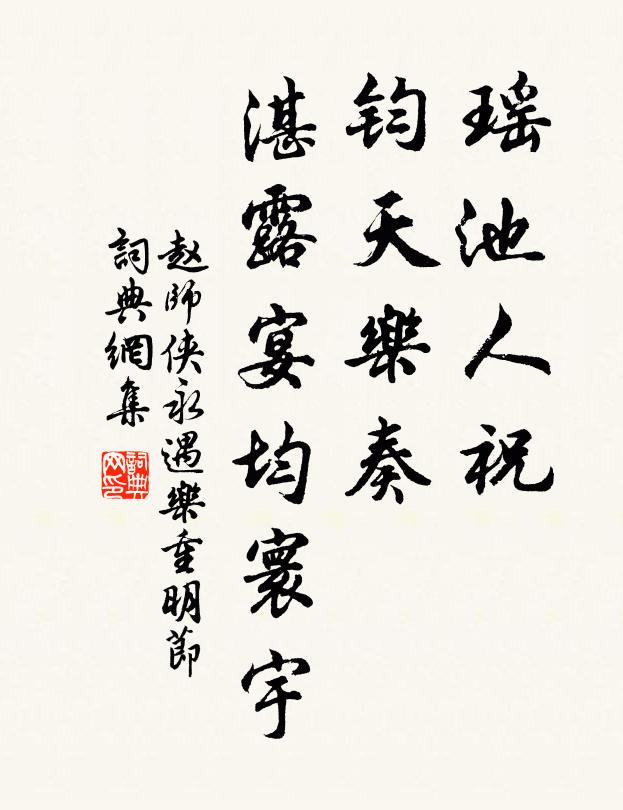 瑶池人祝
钧天樂奏
湛露宴均寰宇
赵師侠永遇樂重明節
詞典網集
詞典网印